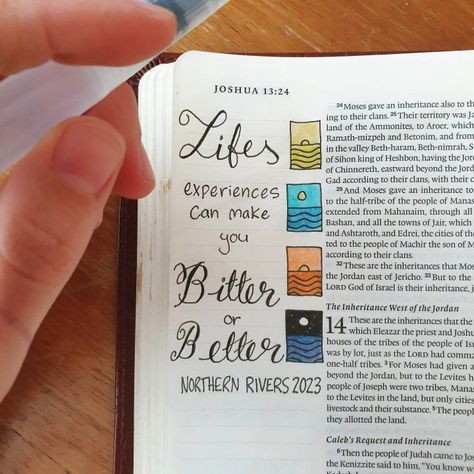 JOSHUA 13:24
Lifes
experiences
Can make
you
Bitter
or
Better
NORTHERN RIVERS 2023
24 Moses gave an inheritance also to th
ing to their clans. 25 Their territory was
land of the Ammonites, to Aroer, which
Ramath-mizpeh and Betonim, and from
in the valley Beth-haram, Beth-nimrah,
of Sihon king of Heshbon, having the
of Chinnereth, eastward beyond the
Gad according to their clans, with their
29 And Moses gave an inheritance
to the half-tribe of the people of
extended from Mahanaim, through all
Bashan, and all the towns of Jair, which
and Ashtaroth, and Edrei, the cities of
ted to the people of Machir the son of M
according to their clans.
32 These are the inheritances that
the Jordan east of Jericho. 33 But to the
LORD God of Israel is their inheritance,
The Inheritance West of the Jordan
14 These are the inheritances that the
which Eleazar the priest and Joshu
houses of the tribes of the people of
was by lot, just as the LORD had
one-half tribes. 3 For Moses had given a
beyond the Jordan, but to the Levites
people of Joseph were two tribes,
to the Levites in the land, but only cities
livestock and their substance. 5 The
they allotted the land.
Caleb's Request and Inheritance
6 Then the people of Judah came to
the Kenizzite said to him, "You know